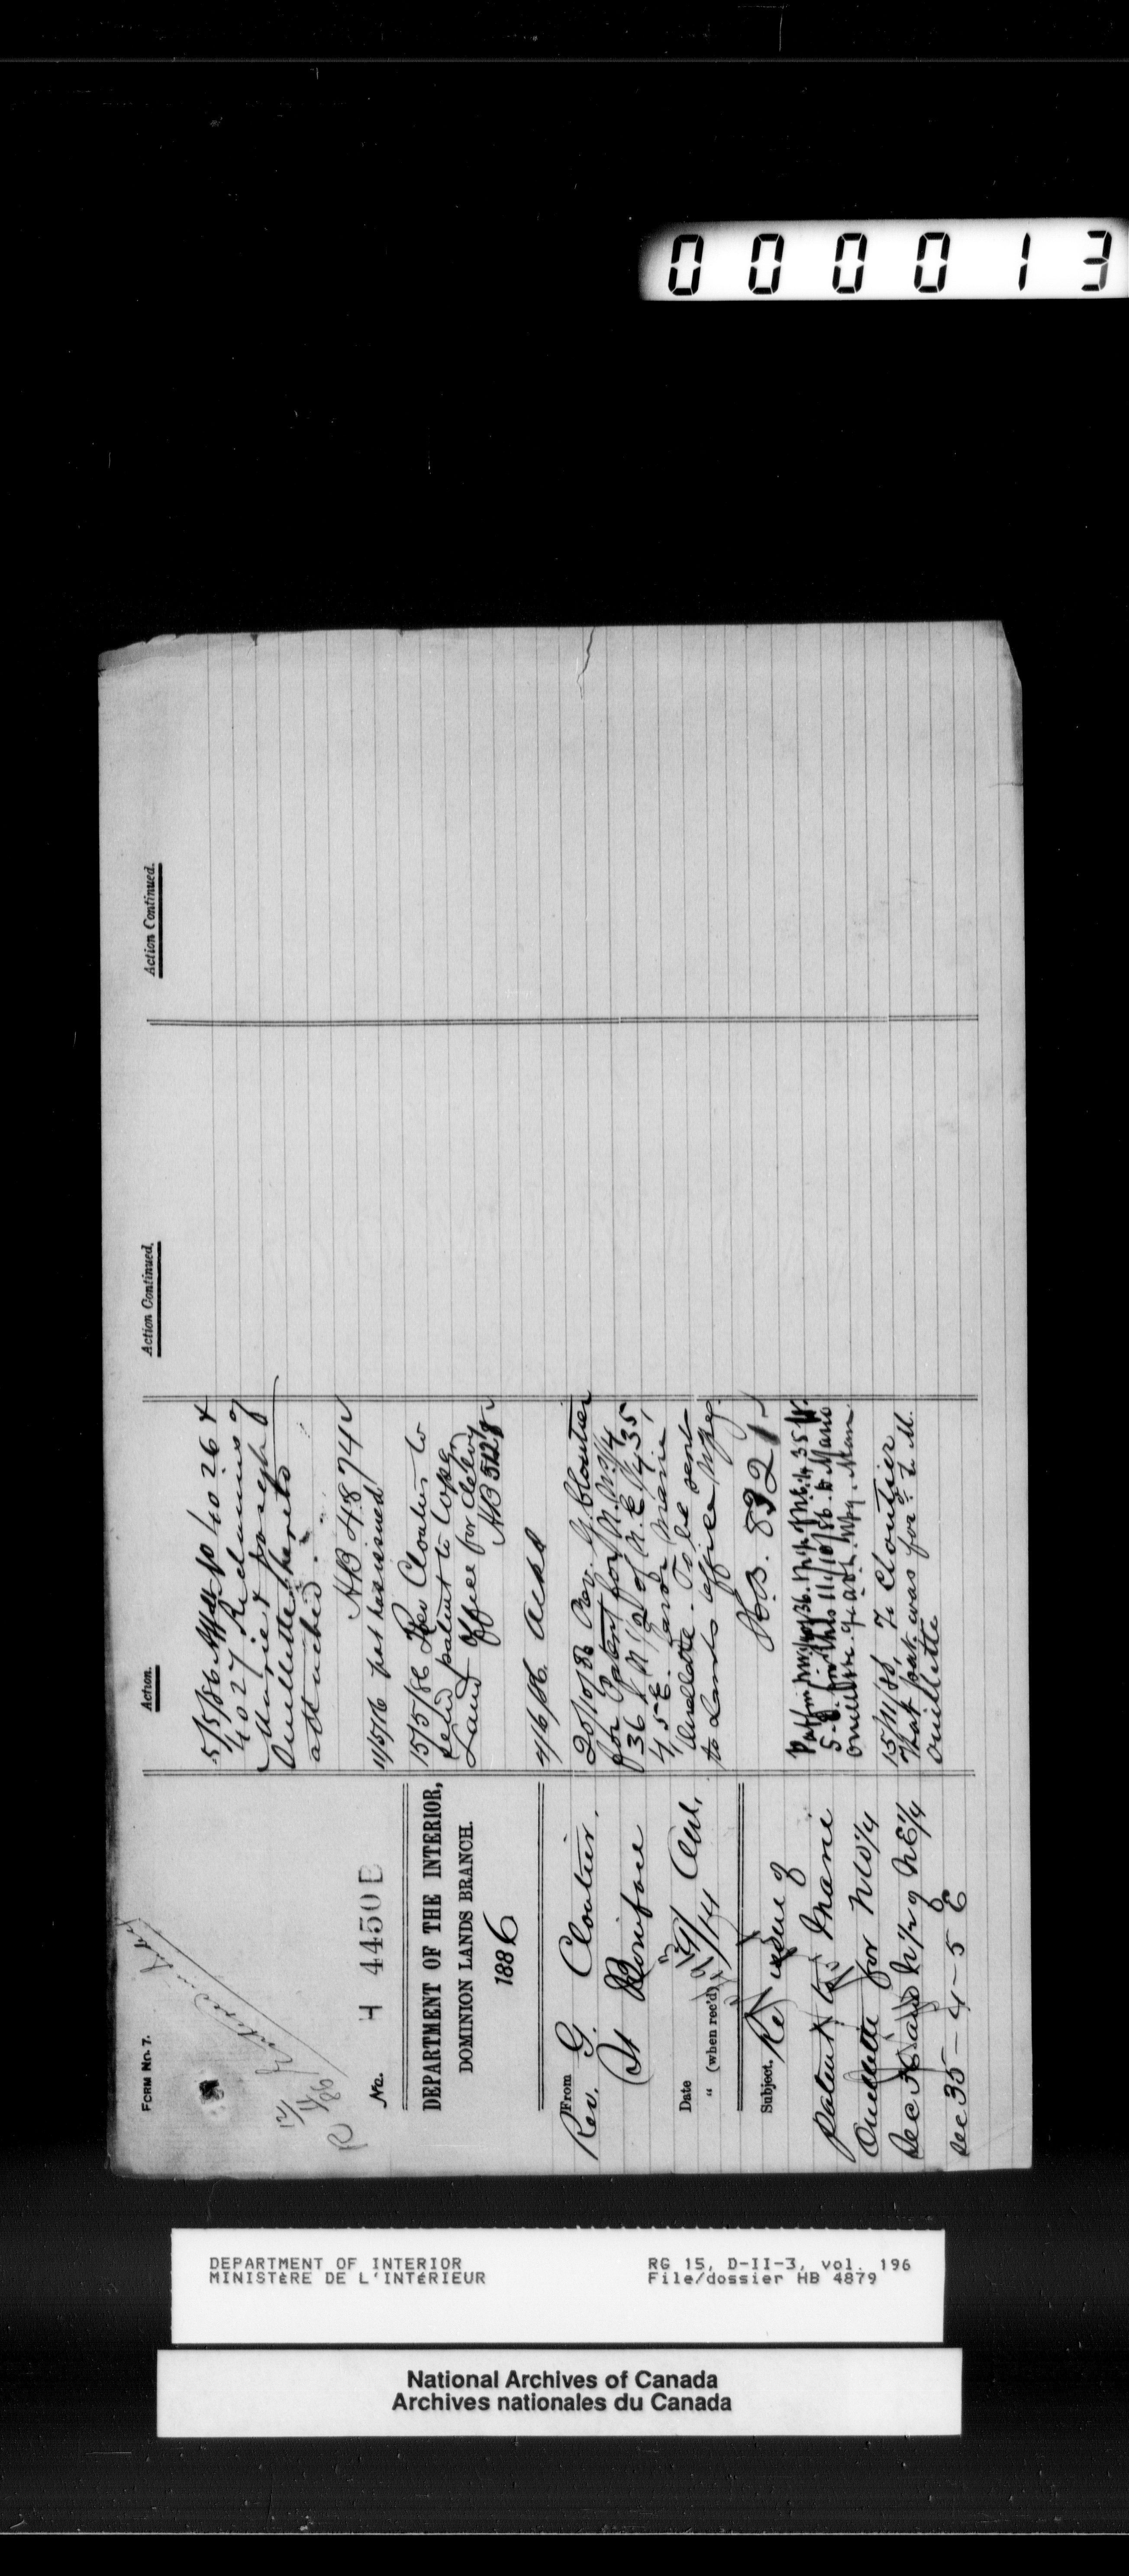 000013
FORM No. 7.
12/4/86
R
No. H 4450 E
DEPARTMENT OF THE INTERIOR,
DOMINION LANDS BRANCH.
1886
From
Rev. G. Cloutier.
St Boniface
Date 9/ Apl.
" (when rec'd) 14
Subject. Re issue of
patent to Marie
Ouellette for NW1/4
Sec 36 and N 1/2 of NE1/4
Sec 35-4-5 E
Action.
5/5/86 to 4026 &
4027 Re claims of
Marie & Joseph
Ouellette hereto
attached.
HB 4874
11/5/86 pat has issued
15/5/86 Rev Cloutier to
send patent to Wpg
Land Office for delivy
HB 5128
4/6/86 Ackd
20/10/86 Rev. G. Cloutier
for Patent for N.W 1/4
36 & N 1/2 of N.E 1/4 35,
4.5-E. favor Marie
Ouellette. To be sent
to Lands Office Wpg.
H.B. 8321
Pat for NW 1/4 36. N 1/2 of NE 1/4 35 4.
5-E. 11/10/86 to Marie
Ouellette Wpg. Man.
15/11/88, To Cloutier
That pat. was for to M.
Ouillette
Action Continued.
Action Continued.
DEPARTMENT OF INTERIOR
MINISTÈRE DE L'INTÉRIEUR
RG 15, D-II-3, vol. 196
File/dossier HB 4879
National Archives of Canada
Archives nationales du Canada